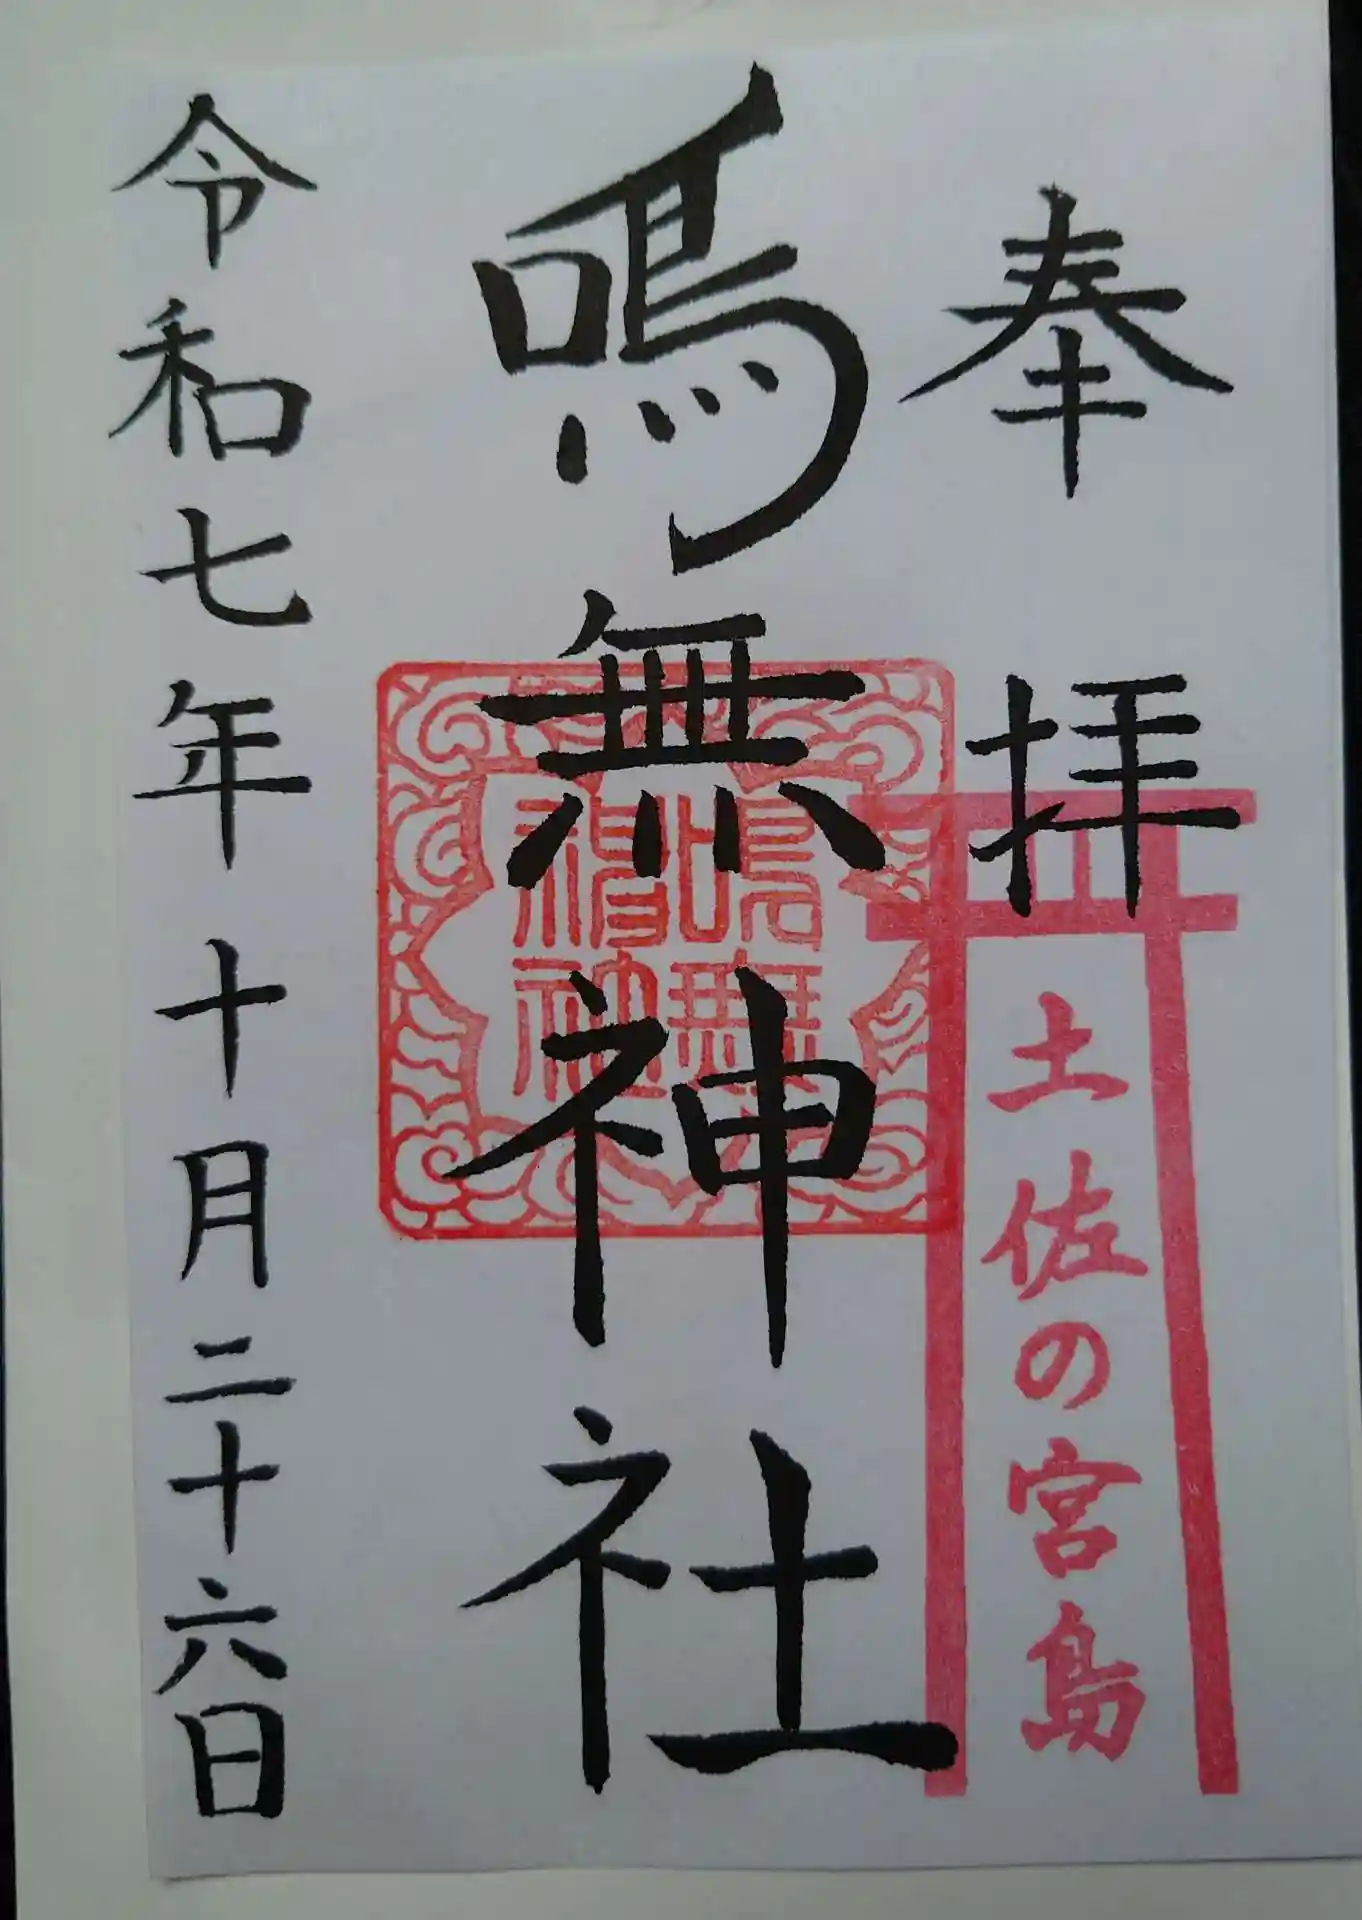 奉拝
土佐の宮島
鳴無神社
鳴無
神社
令和七年十月二十六日